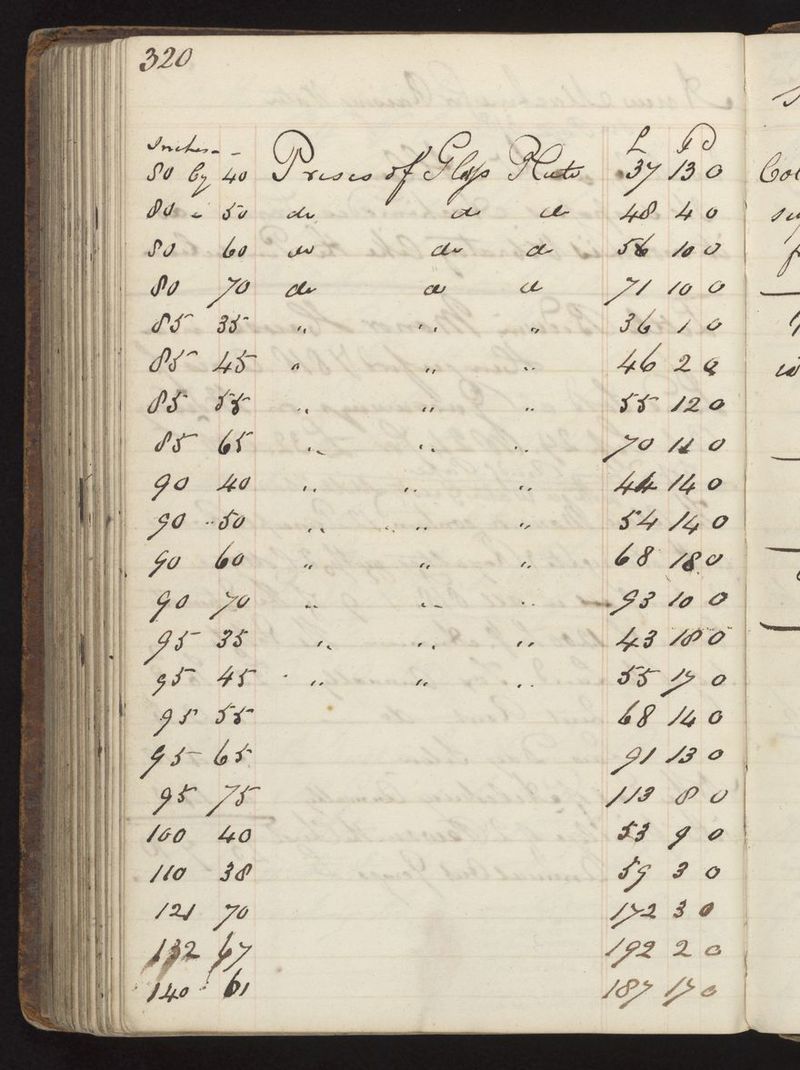 320
Inches L S d
80 by 40 Prises of Glass Plate 37 13 0
80 " 50 do do do 48 4 0
80 60 do do do 56 10 0
80 70 do do do 71 10 0
85 35 " " " 36 1 0
85 45 " " " 46 2 0
85 55 " " " 55 12 0
85 65 " " " 70 11 0
90 40 " " " 44 14 0
90 50 " " " 54 14 0
90 60 " " " 68 18 0
90 70 " " " 93 10 0
95 35 " " " 43 18 0
95 45 " " " 55 17 0
95 55 68 14 0
95 65 91 13 0
95 75 113 8 0
100 40 53 9 0
110 38 59 3 0
121 70 172 3 0
132 67 192 2 0
140 61 187 17 0